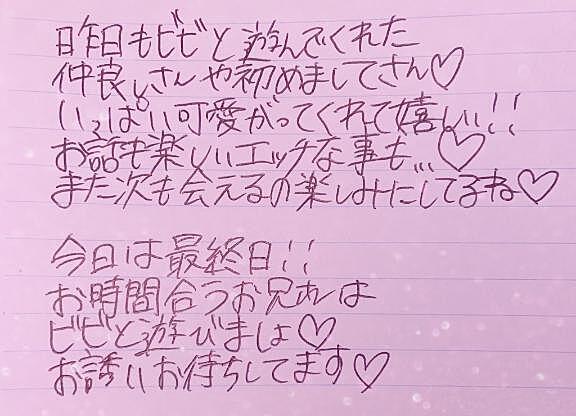 昨日もビビと遊んでくれた
仲良しさんや初めましてさん♡
いっぱい可愛がってくれて嬉しい!!
お話も楽しいエッチな事も...♡
また次も会えるの楽しみにしてるね♡
今日は最終日!!
お時間合うお兄れは
ビビと遊びましょ♡
お誘いお待ちしてます♡